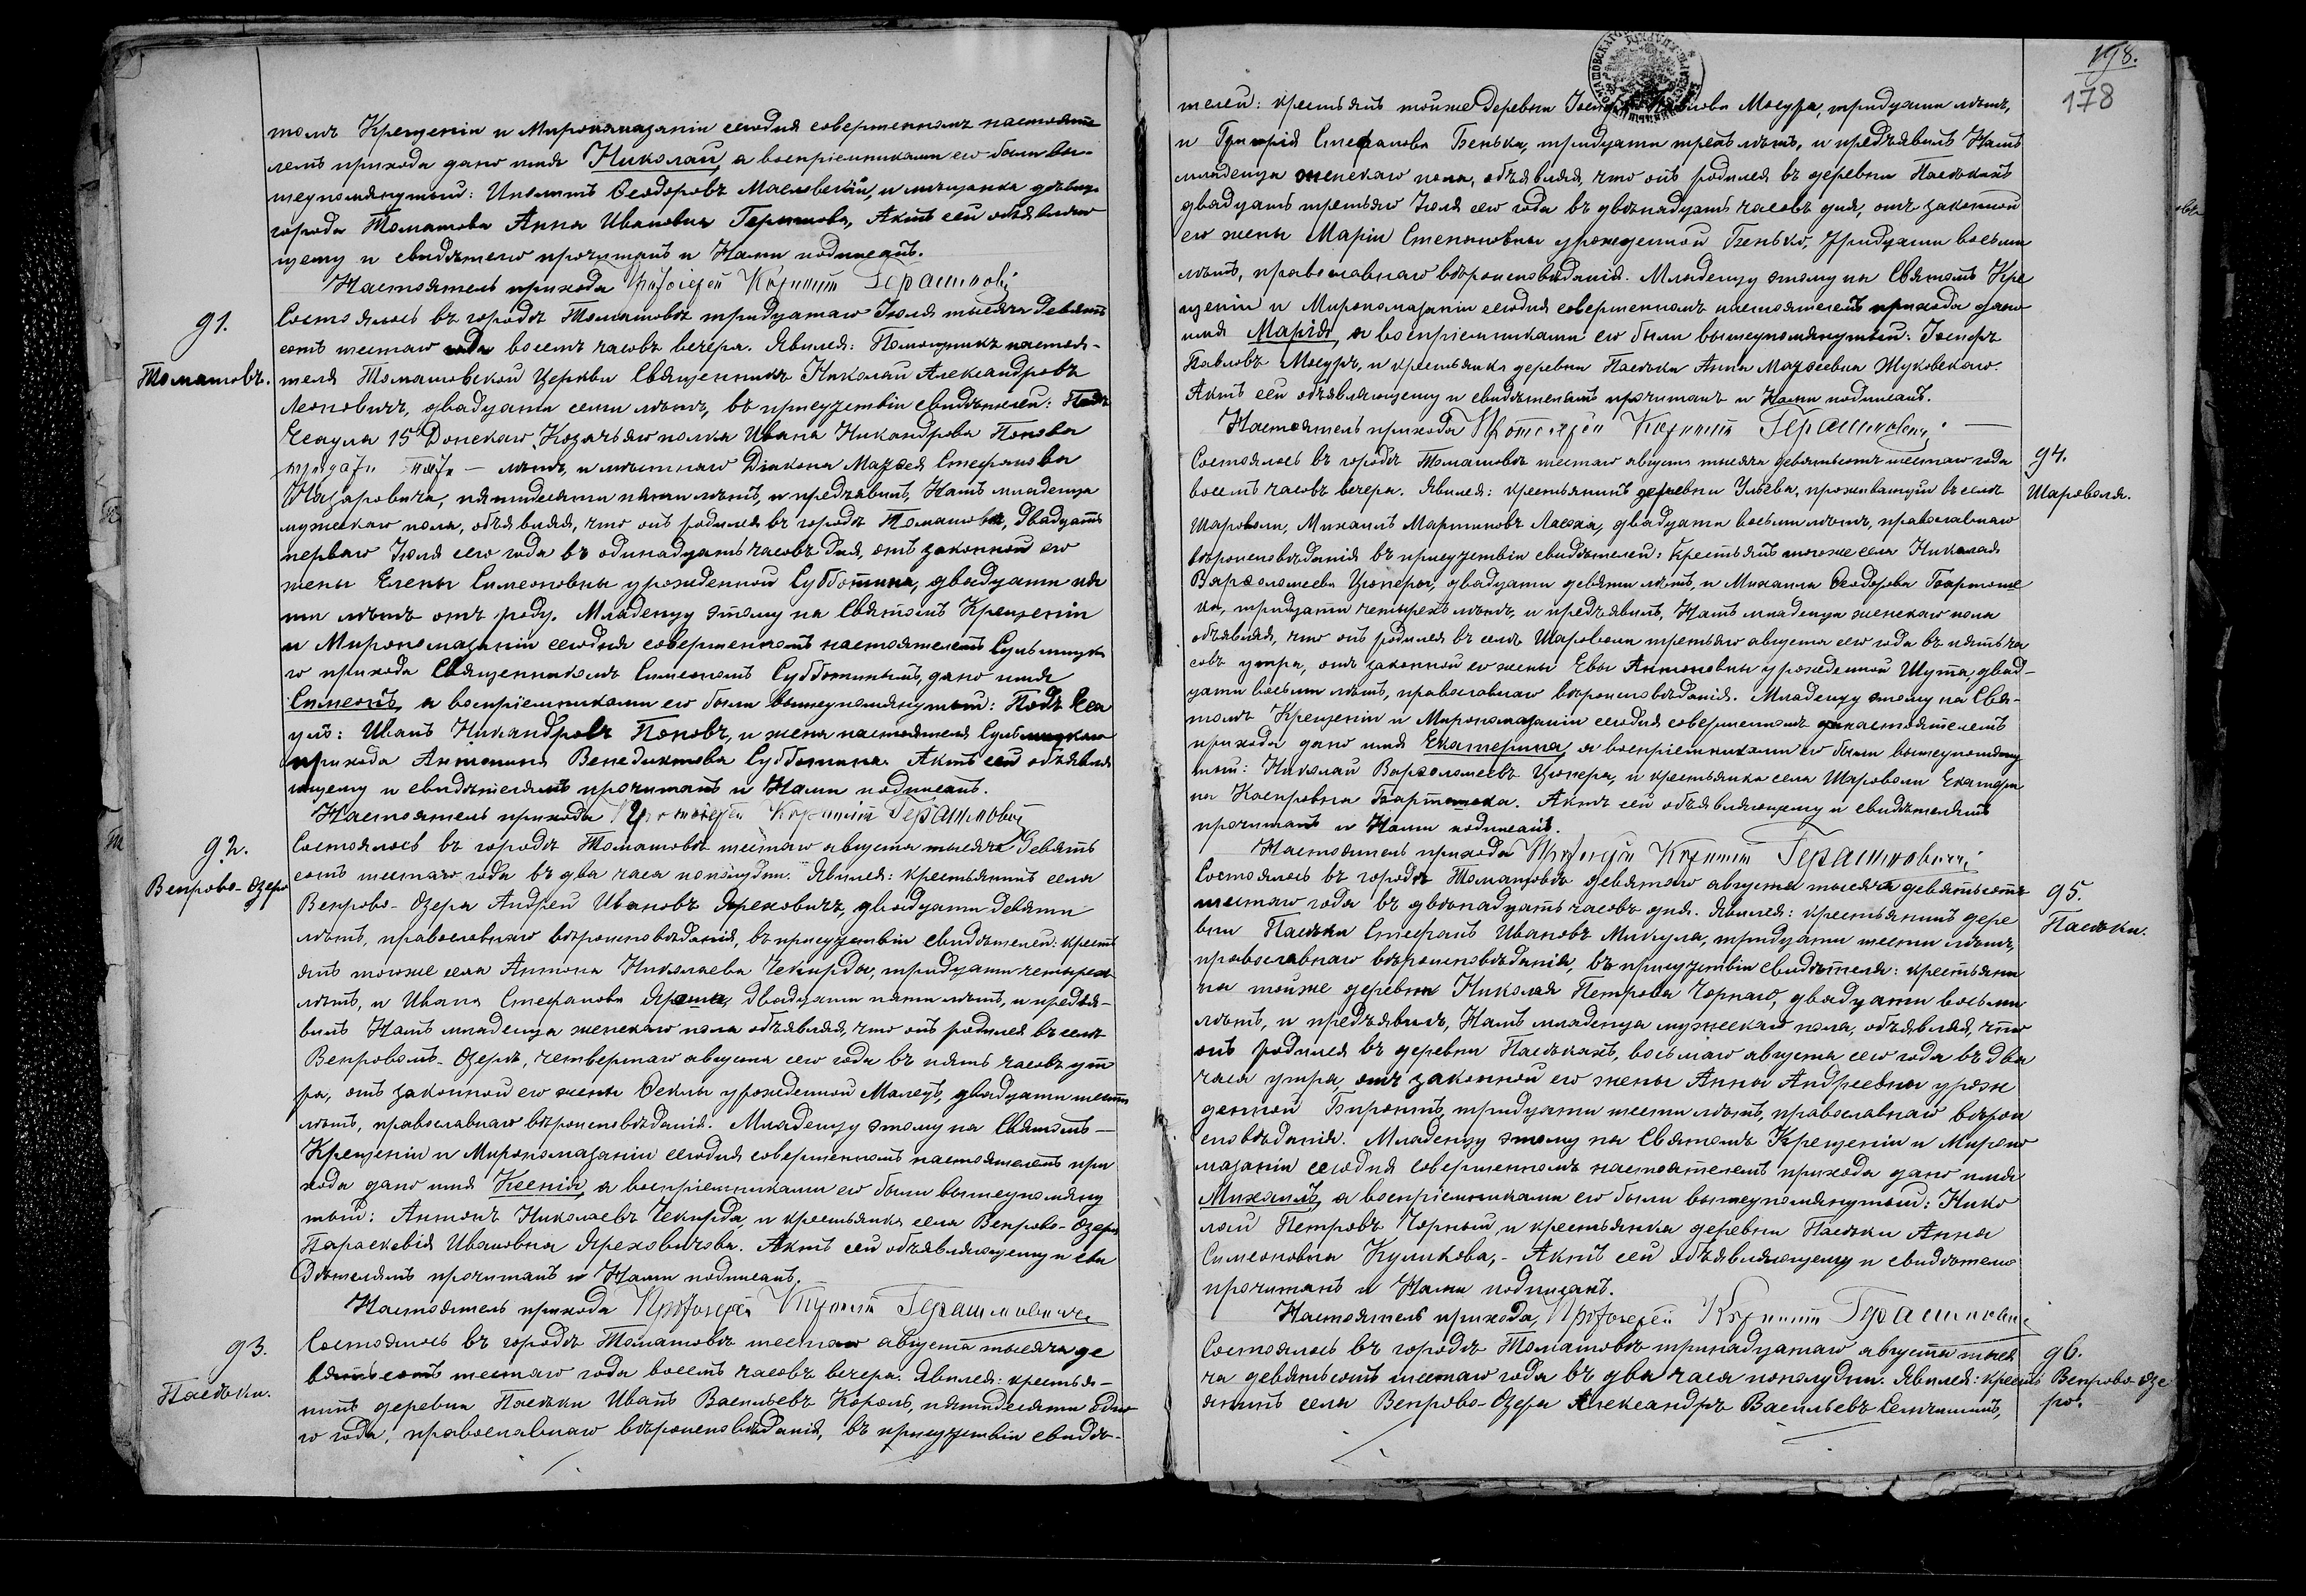 томъ Крещеніи и Миропомазаніи сегодня совершенномъ настояте
лемъ прихода дано имя Николай, а воспріемниками его были вы-
шеупомянутый: Игнатій Ѳеодоровъ Масловскій, и мѣщанка
города Томашова Анна Иванова Акт сей объявляю
щему и свидѣтелю прочитанъ и Нами подписанъ.
Настоятель прихода Протоіерей Герасимовичъ
91.
Томашовъ.
Состоялось въ городѣ Томашовѣ тридцатаго Іюля тысяча девять
сотъ шестаго года восемь часовъ вечера. Явился: Помощникъ настоя-
теля Томашовской Церкви Священникъ Николай Александровъ
Леоновичъ, двадцати семи лѣтъ, въ присутствіи свидѣтелей: Подъ
Есаула 15 Донскаго Козачьяго полка Ивана Никандрова Попова
тридцати пяти — лѣтъ, и мѣстнаго Діакона Маѳѳея Стефанова
Назаровича, пятидесяти пяти лѣтъ, и предъявилъ Намъ младенца
мужескаго пола, объявляя, что онъ родился въ городѣ Томашовѣ, двадцать
перваго Іюля сего года въ одинадцать часовъ дня, отъ законной его
жены Елены Симеоновны урожденной Субботина, двадцати пя
ти лѣтъ отъ роду. Младенцу этому на Святомъ Крещеніи
и Миропомазаніи сегодня совершенномъ настоятелемъ
го прихода Священникомъ Симеономъ Субботинымъ, дано имя
Симеонъ, а воспріемниками его были вышеупомянутый: Подъ Еса
улъ: Иванъ Никандровъ Поповъ, и жена настоятеля
прихода Антонина Венедиктова Субботина. Актъ сей объявля
ющему и свидѣтелямъ прочитанъ и Нами подписанъ.
Настоятель прихода Протоіерей Герасимовичъ
92.
Вепрово-Озеро
Состоялось въ городѣ Томашовѣ шестаго августа тысяча девять
сотъ шестаго года въ два часа пополудни. Явился: крестьянинъ села
Вепрово-Озера Андрей Ивановъ Яреховичъ, двадцати девяти
лѣтъ, православнаго вѣроисповѣданія, въ присутствіи свидѣтелей: крест
янъ тогоже села Антона Николаева Чекирды, тридцати четырехъ
лѣтъ, и Ивана Стефанова Яреша, двадцати пяти лѣтъ, и предъя-
вилъ Намъ младенца женскаго пола объявляя, что онъ родился въ селѣ
Вепровомъ-Озерѣ, четвертаго августа сего года въ пять часовъ ут
ра, отъ законной его жены Ѳеклы урожденной Малецъ, двадцати шести
лѣтъ, православнаго вѣроисповѣданія. Младенцу этому на Святомъ —
Крещеніи и Миропомазаніи сегодня совершенномъ настоятелемъ при
хода дано имя Ксенія, а воспріемниками его были вышеупомяну
тый: Антонъ Николаевъ Чекирда, и крестьянка села Вепрово-Озера
Параскевія Ивановна Яреховичова. Актъ сей объявляющему и сви
дѣтелямъ прочитанъ и Нами подписанъ.
Настоятель прихода Протоіерей Герасимовичъ
93.
Пасѣки.
Состоялось въ городѣ Томашовѣ шестаго августа тысяча де
вятьсотъ шестаго года восемь часовъ вечера. Явился: крестья-
нинъ деревни Пасѣки Иванъ Васильевъ Король, пятидесяти одно
го года, православнаго вѣроисповѣданія, въ присутствіи свидѣ-
198.
178
телей: крестьянъ тойже деревни Мосура, тридцати лѣтъ,
и Григорія Стефанова Бенька, тридцати трехъ лѣтъ, и предъявилъ Намъ
младенца женскаго пола, объявляя, что онъ родился въ деревни Пасѣкахъ
двадцать третьяго Іюля сего года въ двѣнадцать часовъ дня, отъ законной
его жены Маріи Степановны урожденной Бенько, тридцати восьми
лѣтъ, православнаго вѣроисповѣданія. Младенцу этому на Святомъ Кре
щеніи и Миропомазаніи сегодня совершенномъ настоятелемъ прихода дано
имя Марія, а воспріемниками его были вышеупомянутый: Іосифъ
Павловъ Мосуръ, и крестьянка деревни Пасѣки Анна Маѳѳеевна Жуковскаго.
Актъ сей объявляющему и свидѣтелямъ прочитанъ и Нами подписанъ.
Настоятель прихода Протоіерей Герасимовичъ —
94.
Шароволя.
Состоялось въ городѣ Томашовѣ шестаго августа тысяча девятьсотъ шестаго года
восемь часовъ вечера. Явился: крестьянинъ деревни проживающій въ селѣ
Шароволи, Михаилъ Мартиновъ Ласоха, двадцати восьми лѣтъ, православнаго
вѣроисповѣданія въ присутствіи свидѣтелей: Крестьянъ тогоже села Николая
Варѳоломеева Цюпера, двадцати девяти лѣтъ, и Михаила Ѳеодорова Бартоше
ка, тридцати четырехъ лѣтъ, и предъявилъ Намъ младенца женскаго пола
объявляя, что онъ родился въ селѣ Шароволи третьяго августа сего года въ пять ча
совъ утра, отъ законной его жены Евы Антоновны урожденной Шута, двад-
цати восьми лѣтъ, православнаго вѣроисповѣданія. Младенцу этому на Свя-
томъ Крещеніи и Миропомазаніи сегодня совершенномъ настоятелемъ
прихода дано имя Екатерина, а воспріемниками его были вышеупомяну
тый: Николай Варѳоломеевъ Цюпера, и крестьянка села Шароволи Екатери
на Каспровна Бартошека. Актъ сей объявляющему и свидѣтелямъ
прочитанъ и Нами подписанъ.
Настоятель прихода Протоіерей Герасимовичъ
95.
Пасѣки.
Состоялось въ городѣ Томашовѣ девятаго августа тысяча девятьсотъ
шестаго года въ двѣнадцать часовъ дня. Явился: крестьянинъ дере
вни Пасѣки Стефанъ Ивановъ Микула, тридцати шести лѣтъ,
православнаго вѣроисповѣданія, въ присутствіи свидѣтеля: крестьяни
на тойже деревни Николая Петрова Чорнаго, двадцати восьми
лѣтъ, и предъявилъ, Намъ младенца мужескаго пола, объявляя, что
онъ родился въ деревни Пасѣкахъ, восьмаго августа сего года въ два
часа утра, отъ законной его жены Анны Андреевны урож
денной тридцати шести лѣтъ, православнаго вѣрои
сповѣданія. Младенцу этому на Святомъ Крещеніи и Миропо
мазаніи сегодня совершенномъ настоятелемъ прихода дано имя
Михаилъ, а воспріемниками его были вышеупомянутый: Нико
лай Петровъ Чорный, и крестьянка деревни Пасѣки Анна
Симеоновна Куликова, - Актъ сей объявляющему и свидѣтелю
прочитанъ и Нами подписанъ.
Настоятель прихода, Протоіерей Герасимовичъ
96.
Вепрово-Озе
ро.
Состоялось въ городѣ Томашовѣ тринадцатаго августа тыся
ча девятьсотъ шестаго года въ два часа пополудни. Явился: крест
янинъ села Вепрово-Озера Александръ Васильевъ